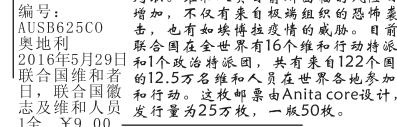 编号：
AUSB625CO
奥地利
2016年5月29日
联合国维和者
日，联合国徽
志及维和人员
1全 ￥9.00
增加，不仅有来自极端组织的恐怖袭
击，也有如埃博拉疫情的威胁。目前
联合国在全世界有16个维和行动特派
和1个政治特派团，共有来自122个国
的12.5万名维和人员在世界各地参加
和行动。这枚邮票由Anita core设计，
发行量为25万枚，一版50枚。